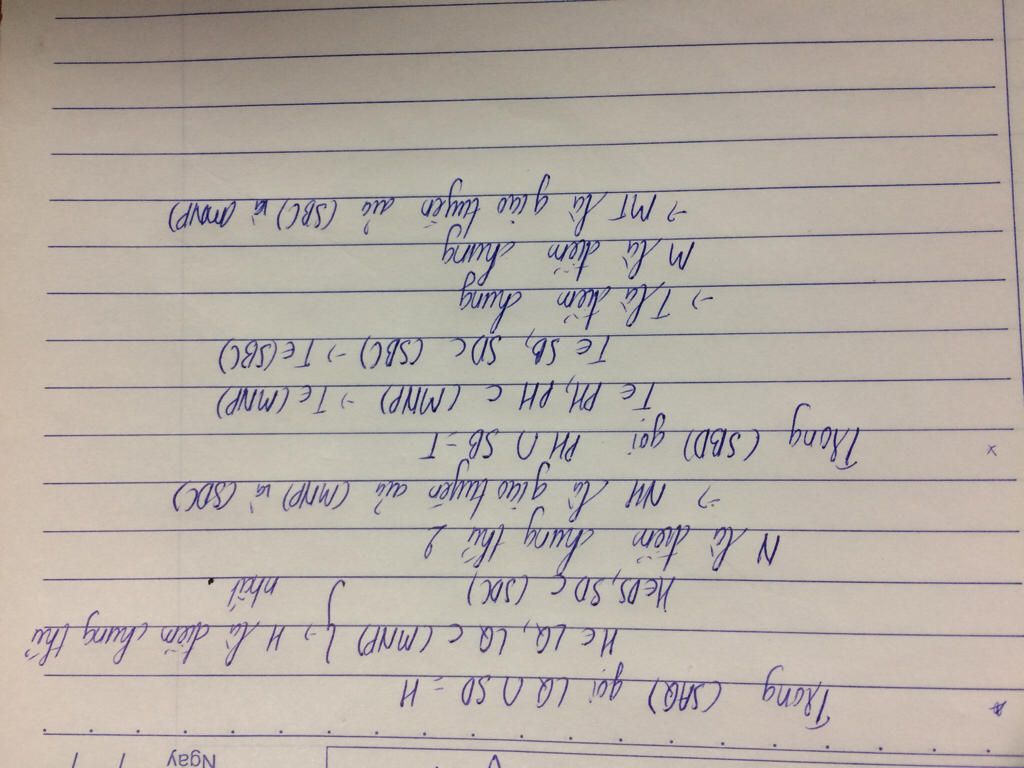 Ngày / /
* Trong (SAQ) gọi LQ ∩ SD = H
H ∈ LQ, LQ ⊂ (MNP) } → H là điểm chung thứ nhất
H∈DS, SD ⊂ (SDC)
N là điểm chung thứ 2
→ NH là giao tuyến của (MNP) và (SDC)
x Trong (SBD) gọi PH ∩ SB = T
T ∈ PH, PH ⊂ (MNP) → T ∈ (MNP)
T ∈ SB, SB ⊂ (SBC) → T ∈ (SBC)
→ T là điểm chung
M là điểm chung
→ MT là giao tuyến của (SBC) và (MNP)